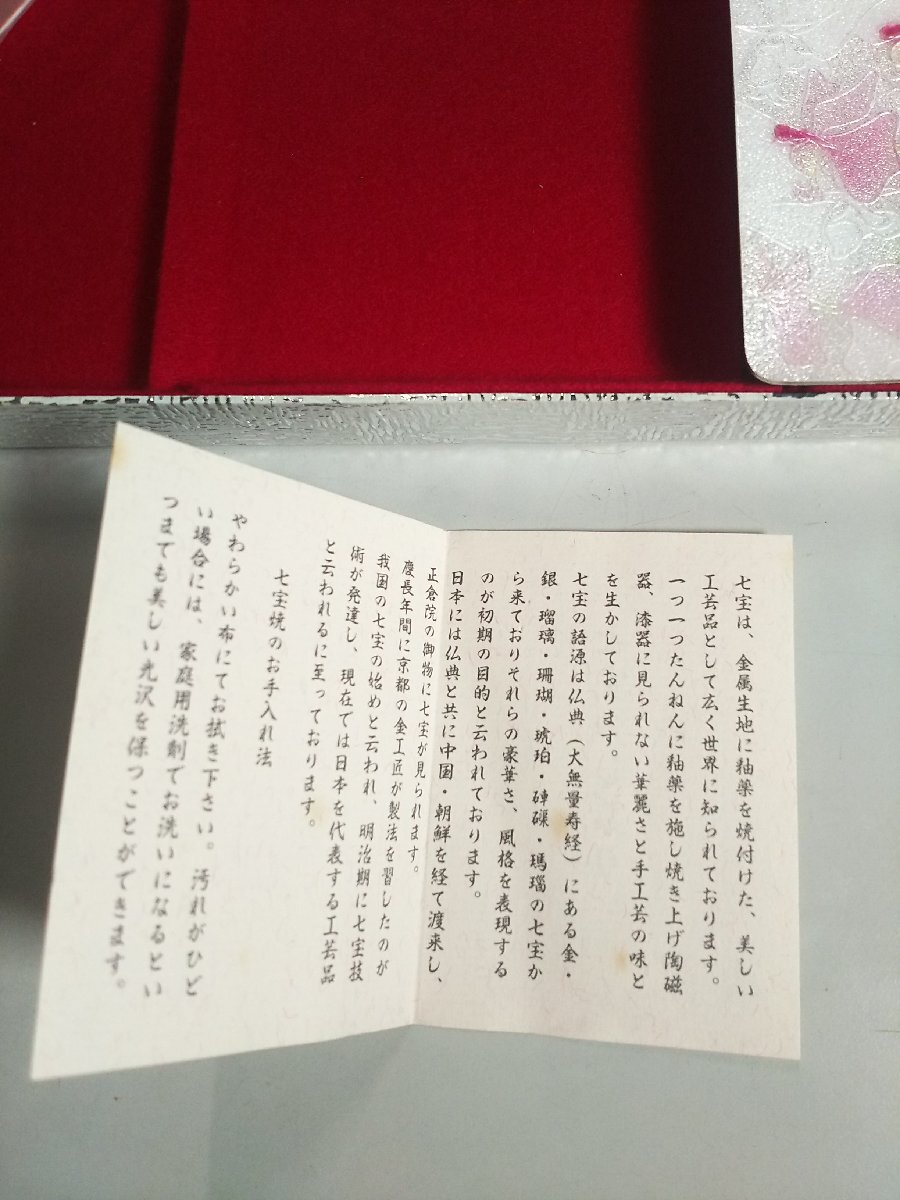 七宝は、金属生地に釉薬を焼付けた、美しい
工芸品として広く世界に知られております。
一つ一つたんねんに釉薬を施し焼き上げ陶磁
器、漆器に見られない華麗さと手工芸の味と
を生かしております。
七宝の語源は仏典(大無量寿経)にある金・
銀・瑠璃・珊瑚・琥珀・硨磲・瑪瑙の七宝か
ら来ておりそれらの豪華さ、風格を表現する
のが初期の目的と云われております。
日本には仏典と共に中国・朝鮮を経て渡来し、
正倉院の御物に七宝が見られます。
慶長年間に京都の金工匠が製法を習したのが
我国の七宝の始めと云われ、明治期に七宝技
術が発達し、現在では日本を代表する工芸品
と云われるに至っております。
七宝焼のお手入れ法
やわらかい布にてお拭き下さい。汚れがひど
い場合には、家庭用洗剤でお洗いになるとい
つまでも美しい光沢を保つことができます。